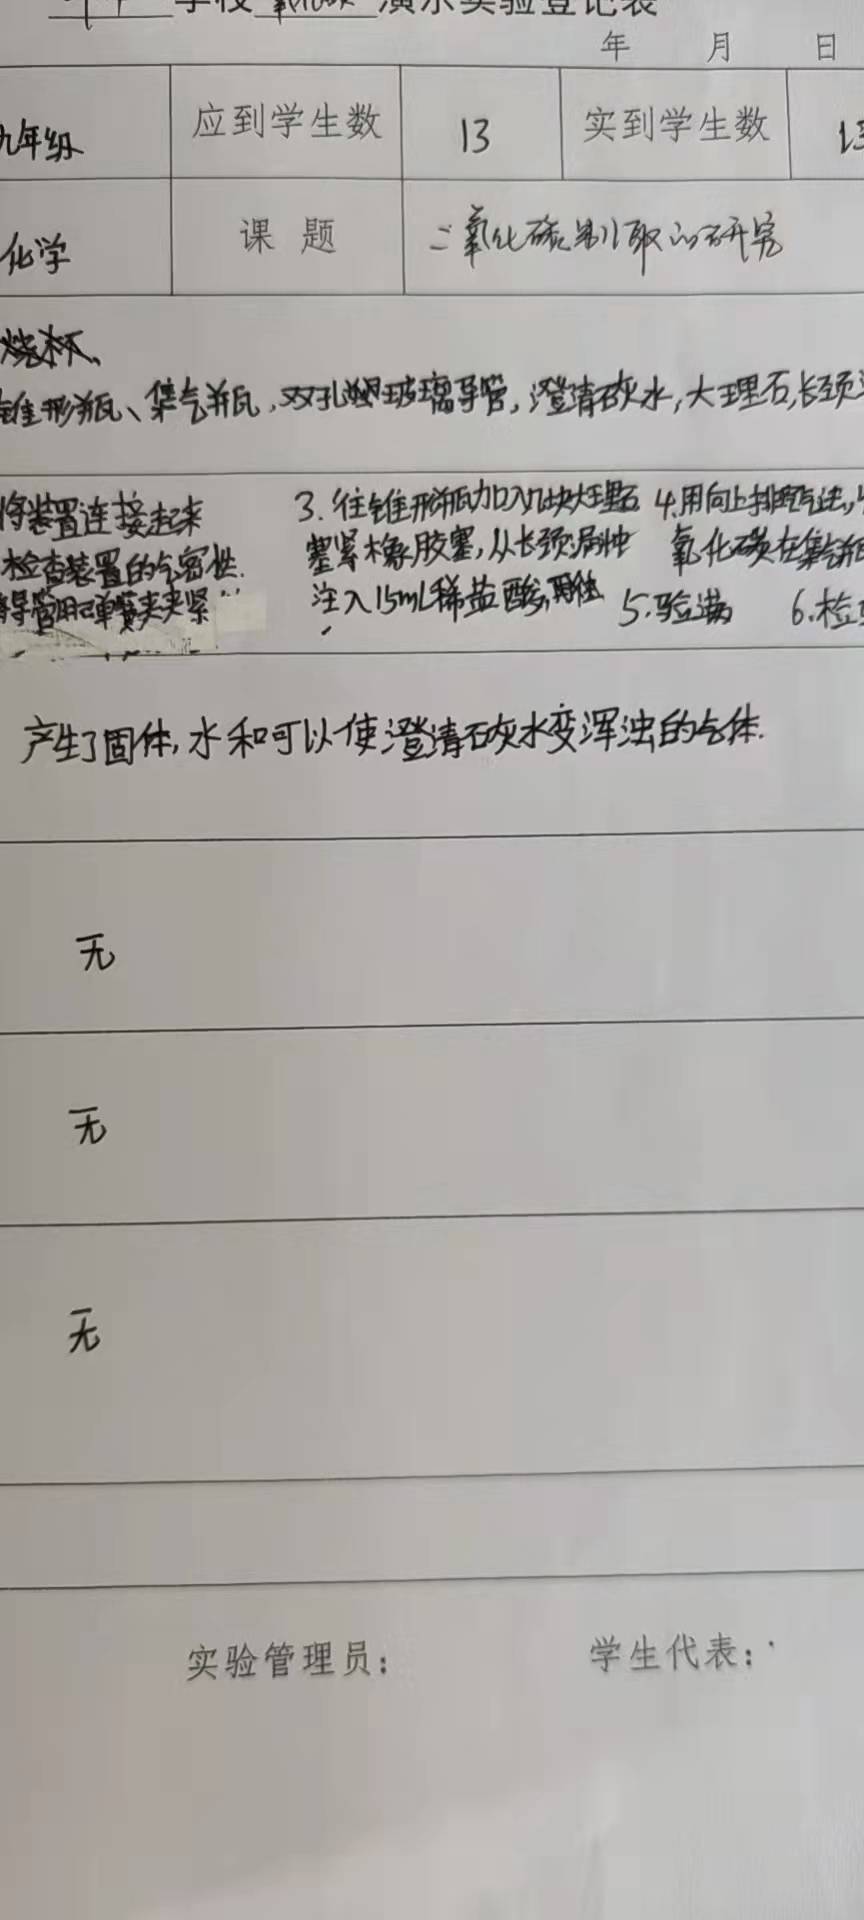 学校 演示实验登记表
年 月 日
九年级 应到学生数 13 实到学生数 13
化学 课 题 二氧化碳制取的研究
烧杯、
锥形瓶、集气瓶,双孔 玻璃导管,澄清石灰水,大理石,长颈
将装置连接起来
检查装置的气密性.
导管用弹簧夹夹紧
3. 往锥形瓶加入几块大理石
塞紧橡胶塞,从长颈漏斗
注入15mL稀盐酸,
4.用向上排空气法,
氧化碳在集气瓶
5.验满 6.检
产生了固体,水和可以使澄清石灰水变浑浊的气体.
无
无
无
实验管理员: 学生代表: